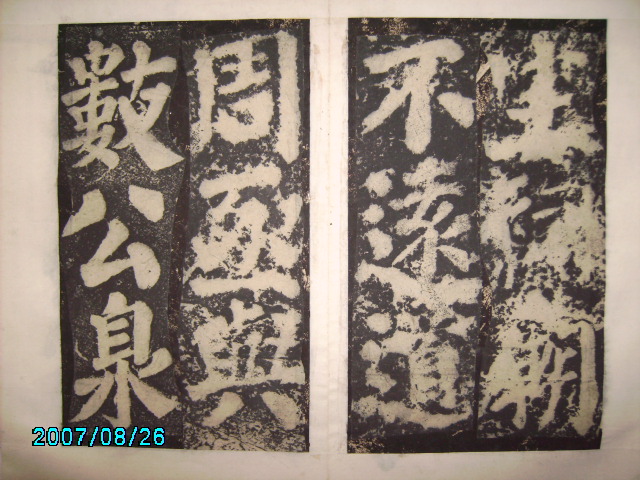 生祠廟
不遠道
周亟與
數公泉
2007/08/26